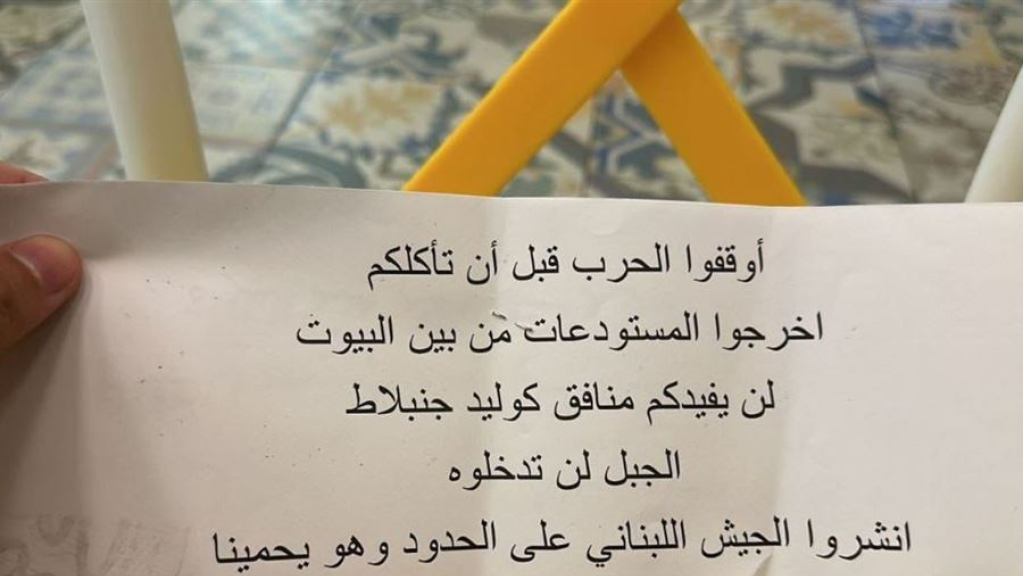 أوقفوا الحرب قبل أن تأكلكم
اخرجوا المستودعات من بين البيوت
لن يفيدكم منافق كوليد جنبلاط
الجبل لن تدخلوه
انشروا الجيش اللبناني على الحدود وهو يحمينا